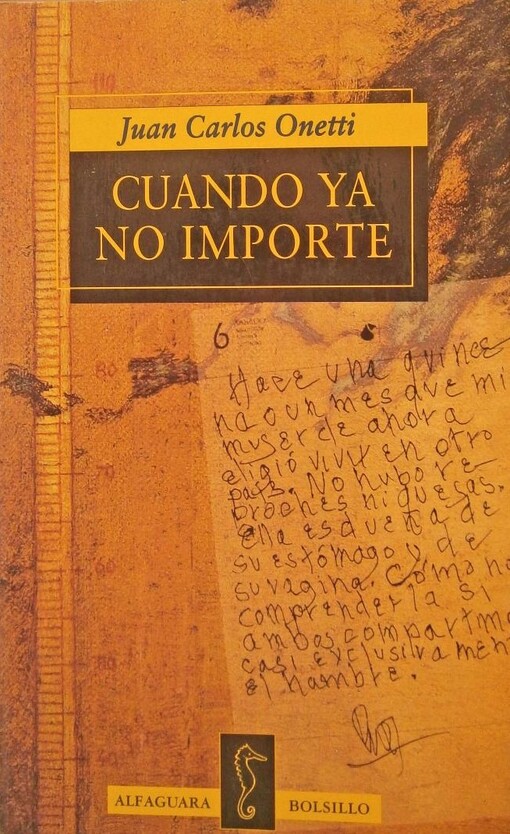 Juan Carlos Onetti
CUANDO YA
NO IMPORTE
6
Hace una quince
na o un mes que mi
mujer de ahora
eligió vivir en otro
país. No hubo re-
proches ni quejas.
Ella es dueña de
su estómago y de
su vagina. Cómo no
comprenderla si
ambos compartimo
casi exclusivamen
el hambre.
ALFAGUARA
BOLSILLO